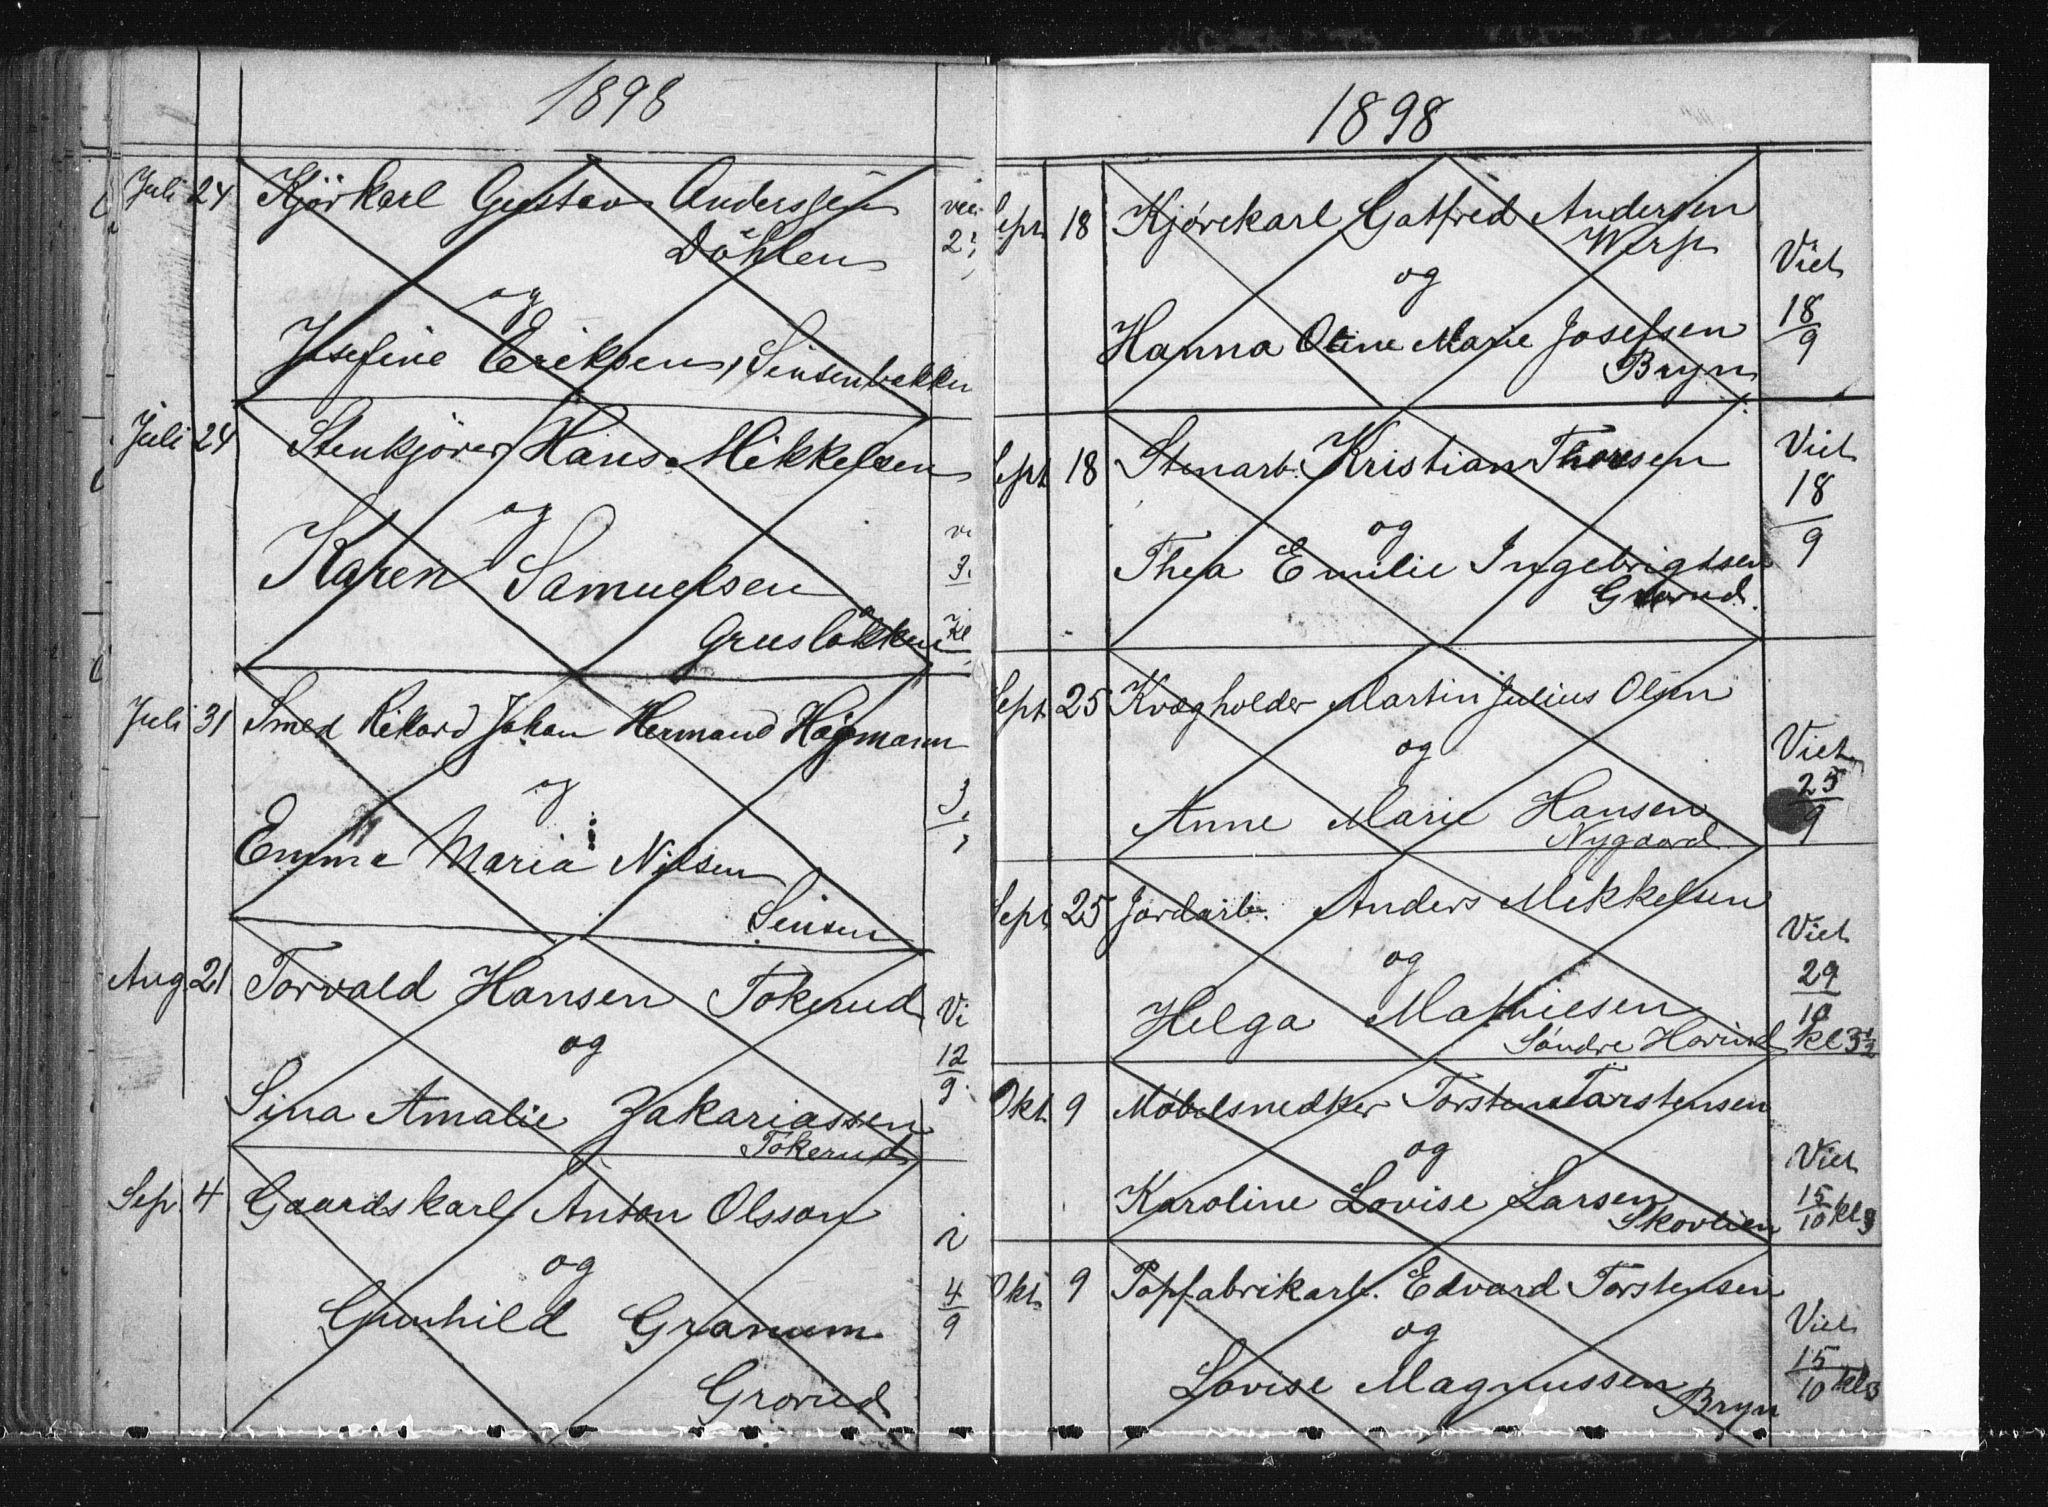 1898
Juli 24 Kjörkarl Gustav Anderssen
Döhlen
og
Josefine Eriksen, Sinsenbakken
Juli 24 Stenkjører Hans Mikkelsen
og
Karen Samuelsen
Grusløkken
Juli 31 Smed Rikard Johan Hermand
og
Emma Maria Nilsen
Sinsen
Aug. 21 Torvald Hansen Tokerud
og
Sina Amalie Zakariassen
Tokerud
Vi
12/9
Sep 4 Gaardskarl Anton Olsson
og
Gunhild Granum
Grorud
4/9
1898
Sept. 18 Kjørekarl Gotfred Andersen
og
Hanna Oline Marie Josefsen
Bryn
Viet
18/9
Sept 18 Stenarb. Kristian Thoresen
og
Thea Emilie Ingebrigtsen
Grorud.
Viet
18/9
Sept. 25 Kvægholder Martin Julius Olsen
og
Anne Marie Hansen
Nygaard
Viet
25/9
Sept 25 Jordarb. Anders Mekkelsen
og
Helga Mathiesen
Søndre Hovind
Viet
29/10
kl 3½
Okt. 9 Møbelsnedker Torsten Tarstensen
og
Karoline Lovise Larsen
Skovlien
Viet
15/10 kl 3
Okt. 9 Papfabrikarb. Edvard Torstensen
og
Lovise Magnussen
Bryn
Viet
15/10 kl 3